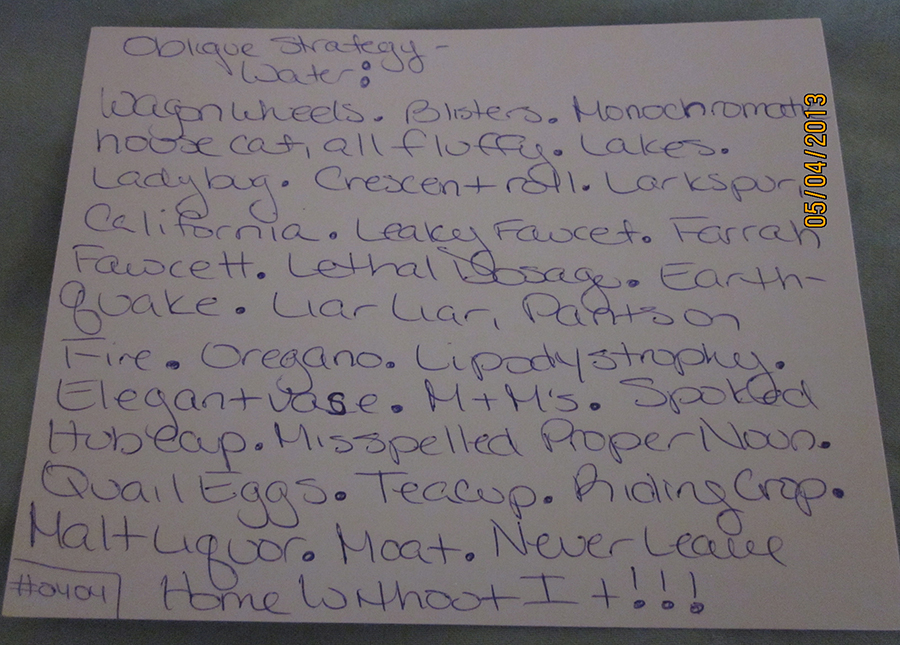 Oblique Strategy -
Water:
Wagon Wheels. Blisters. Monochromatic
house cat, all fluffy. Lakes.
Ladybug. Crescent roll. Larkspur,
California. Leaky Faucet. Farrah
Fawcett. Lethal Dosage. Earth-
quake. Liar Liar, Pants on
Fire. Oregano. Lipodystrophy.
Elegant vase. M+M's. Spoked
Hubcap. Misspelled Proper Noun.
Quail Eggs. Teacup. Riding Crop.
Malt Liquor. Moat. Never Leave
Home Without It!!!
#0404
05/04/2013